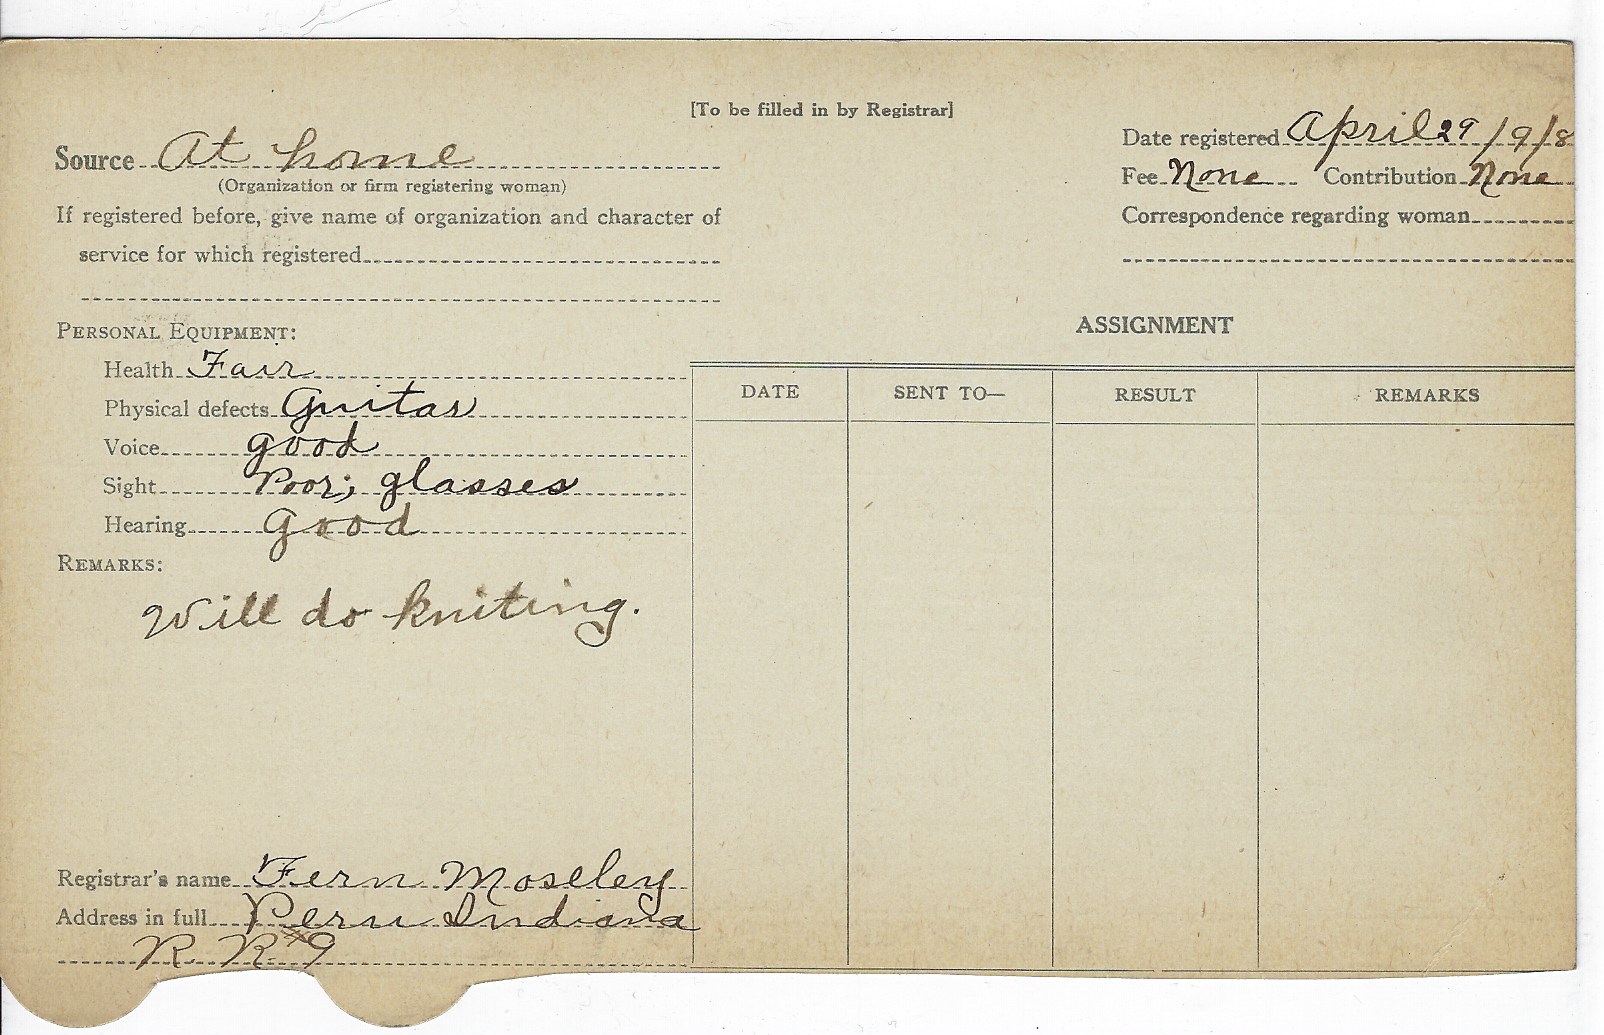 [To be filled in by Registrar]
Source At home
(Organization or firm registering woman)
If registered before, give name of organization and character of
service for which registered
Date registered April 29 1918
Fee None Contribution None
Correspondence regarding woman
PERSONAL EQUIPMENT:
Health Fair
Physical defects Guitar
Voice good
Sight Poor; glasses
Hearing good
REMARKS:
Will do kniting.
ASSIGNMENT
DATE SENT TO— RESULT REMARKS
Registrar's name Fern Moseley
Address in full Peru Indiana
R R #9